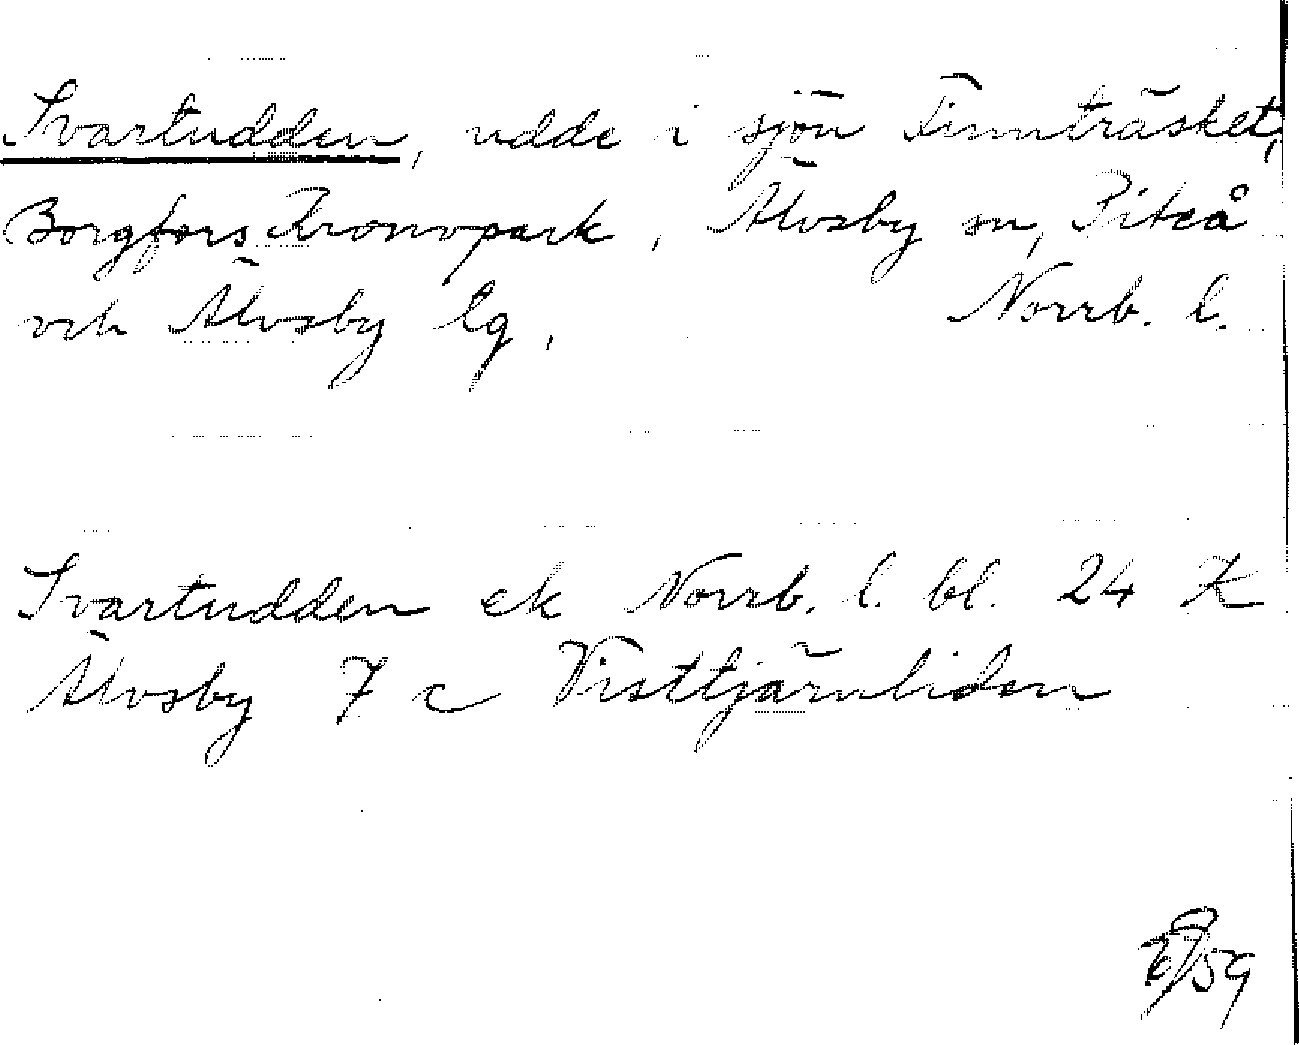 Svartudden, udde i sjön Finnträsket,
Borgfors Kronopark, Älvsby sn, Piteå
och Älvsby tg. Norrb. l.
Svartudden ek Norrb. l. bl. 24 K
Älvsby 7 c Visttjärnliden
59